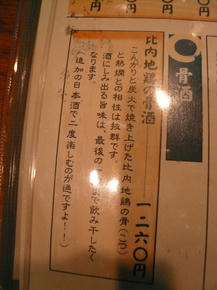 骨酒
比内地鶏の骨酒
一・二六〇円
こんがりと炭火で焼き上げた比内地鶏の骨(こつ)
と熱燗との相性は抜群です。
酒にしみ出る旨味は、最後の一 まで飲み干したく
なります。
(追加の日本酒で二度楽しむのが通ですよ!!)
円